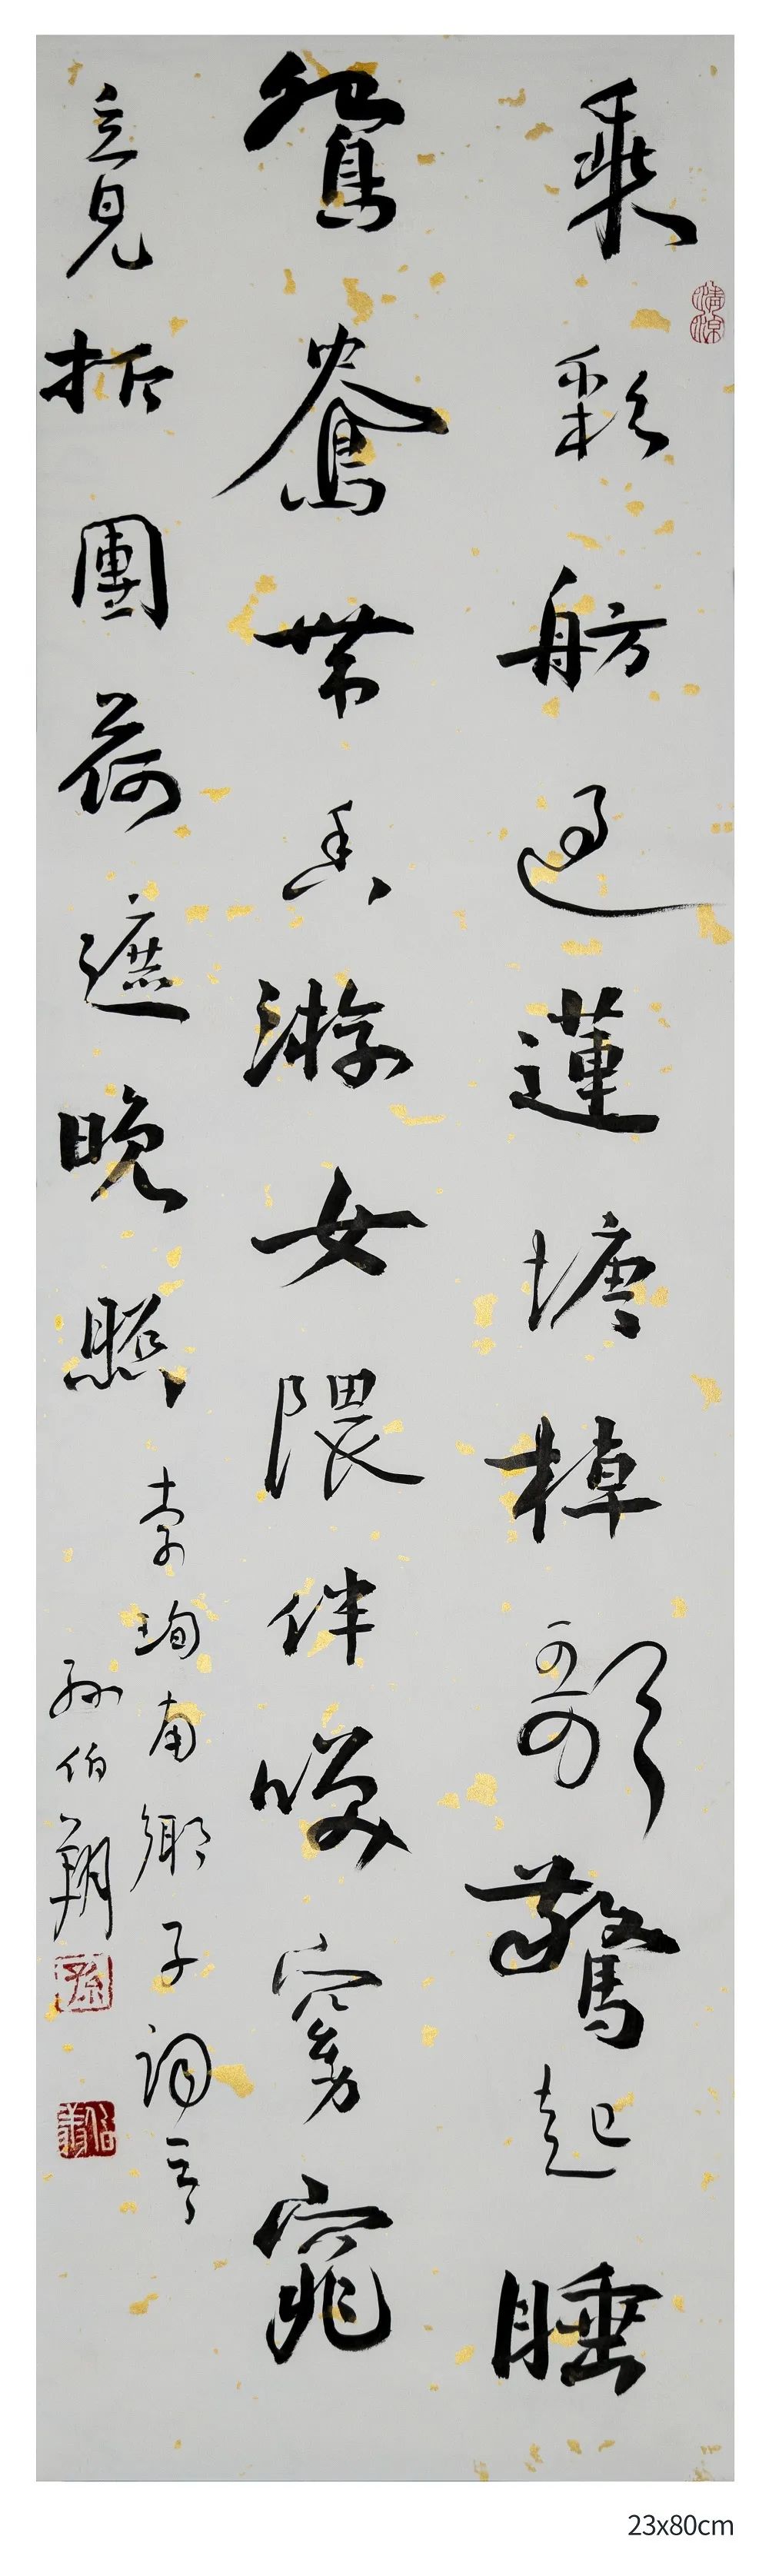 乘彩舫過蓮塘棹歌驚起睡
鴛鴦帶香游女隈伴咲窈窕
竞折團荷遮晚照
李珣南鄉子詞
孫伯翔
孫
伯翔
23x80cm